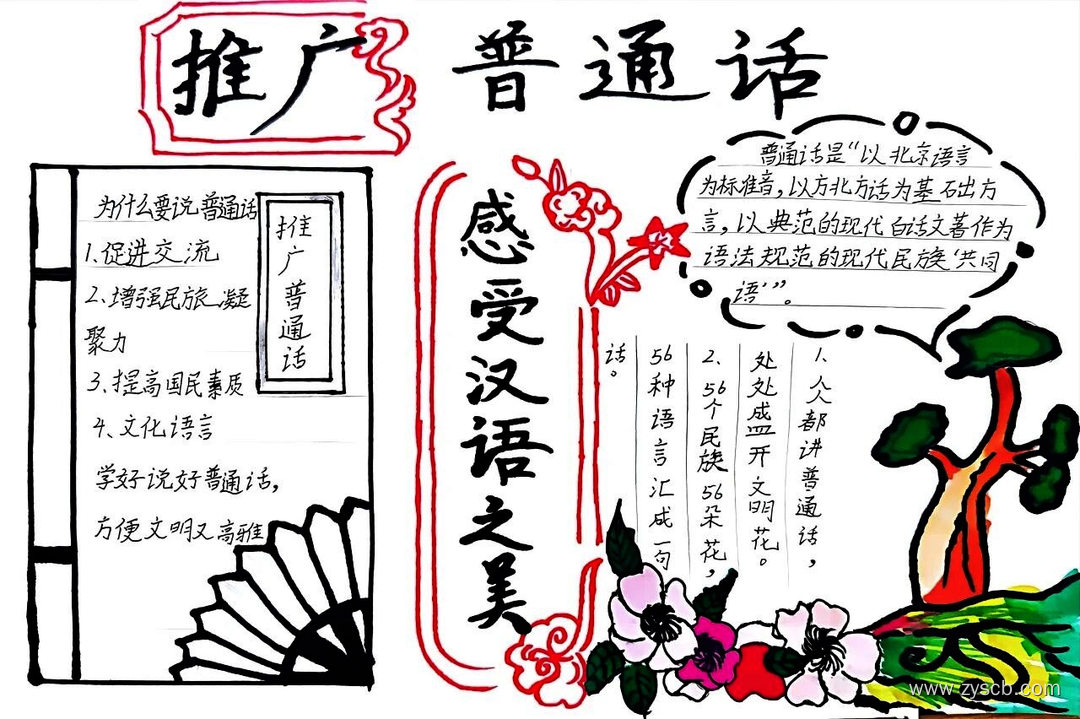 推广普通话
为什么要说普通话
1.促进交流
2、增强民族凝
聚力
3、提高国民素质
4、文化语言
学好说好普通话,
方便文明又高雅
推广普通话
感受汉语之美
普通话是“以北京语言
为标准音,以方北方话为基础方
言,以典范的现代白话文著作为
语法规范的现代民族‘共同
语’”。
1、人人都讲普通话,
处处盛开文明花。
2、56个民族56朵花,
56种语言汇成一句
话。
www.zyscb.com